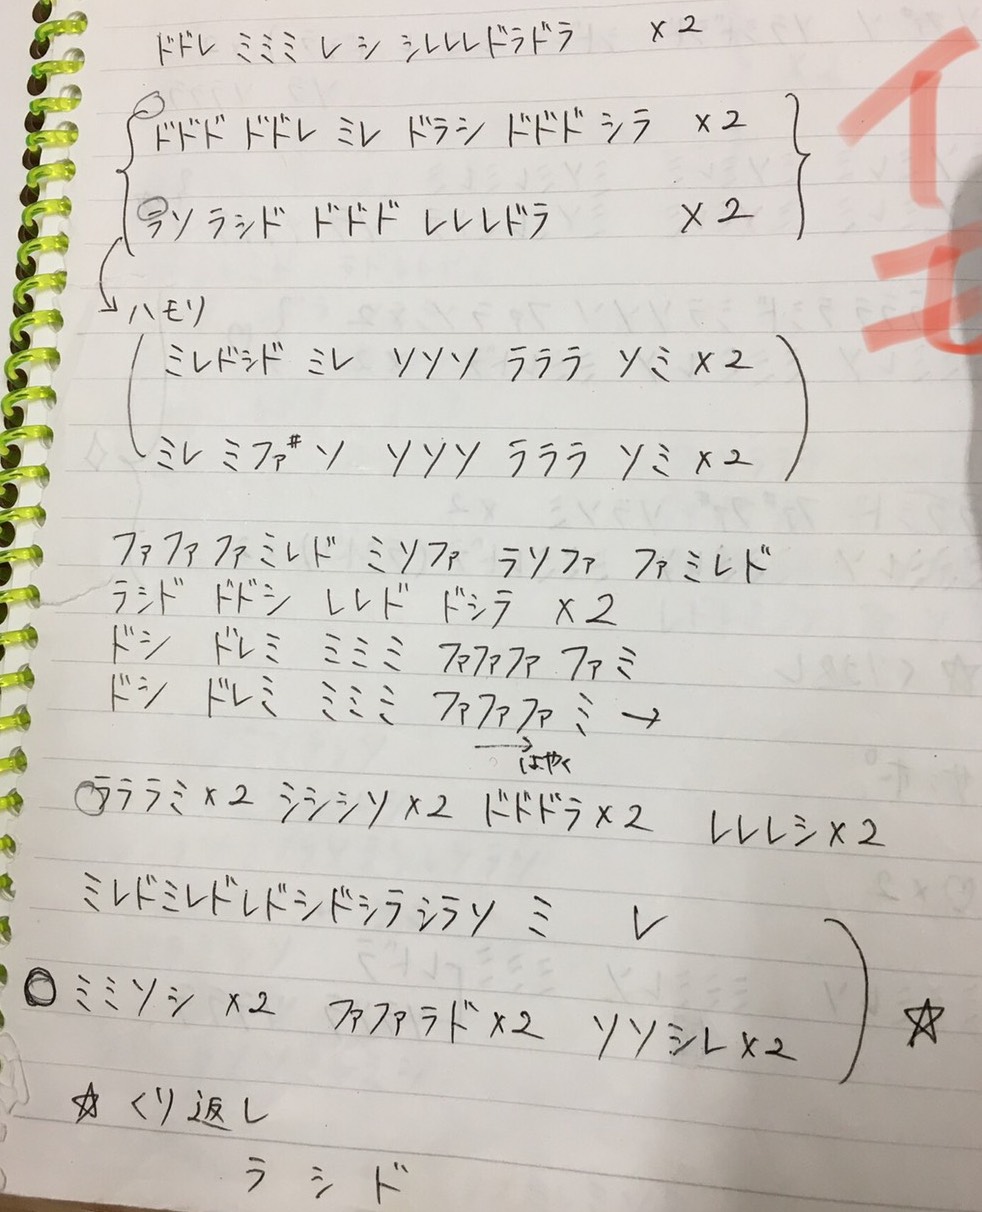 ドドレ ミミミ レシ シレレレドラドラ ×2
ドドド ドドレ ミレ ドラシ ドドド シラ ×2
ラソ ラシド ドドド レレレドラ ×2
→ハモリ
ミレドシド ミレ ソソソ ラララ ソミ ×2
ミレ ミファ#ソ ソソソ ラララ ソミ ×2
ファファファミレド ミソファ ラソファ ファミレド
ラシド ドドシ レレド ドシラ ×2
ドシ ドレミ ミミミ ファファファ ファミ
ドシ ドレミ ミミミ ファファファ ミ →
→はやく
ラララミ×2 シシシソ×2 ドドドラ×2 レレレシ×2
ミレドミレドレドシドシラシラソ ミ レ
ミミソシ ×2 ファファラド×2 ソソシレ×2 ☆
☆ くり返し
ラ シ ド